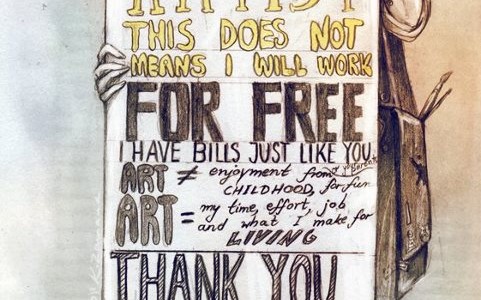 ARTIST
THIS DOES NOT
MEANS I WILL WORK
FOR FREE
I HAVE BILLS JUST LIKE YOU.
ART ≠ enjoyment from
CHILDHOOD, for fun
ART = my time, effort, job
and what I make for
LIVING
THANK YOU